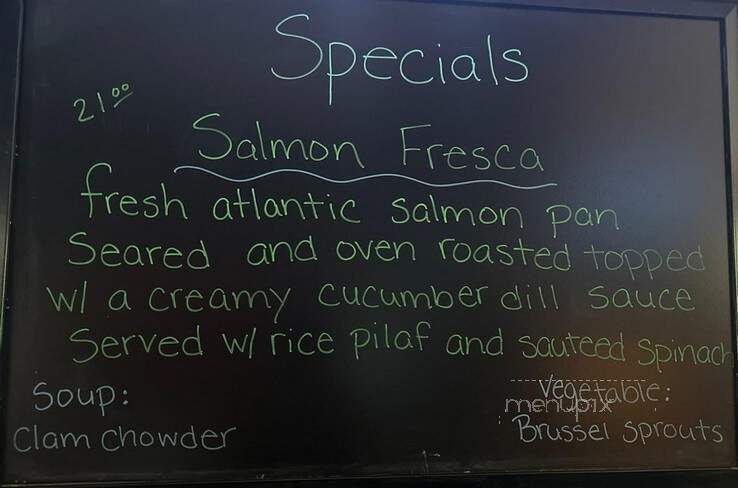 Specials
21.00
Salmon Fresca
fresh atlantic salmon pan
Seared and oven roasted topped
w/ a creamy cucumber dill sauce
Served w/ rice pilaf and sauteed spinach
Soup:
Clam Chowder
Vegetable:
menupix
Brussel Sprouts